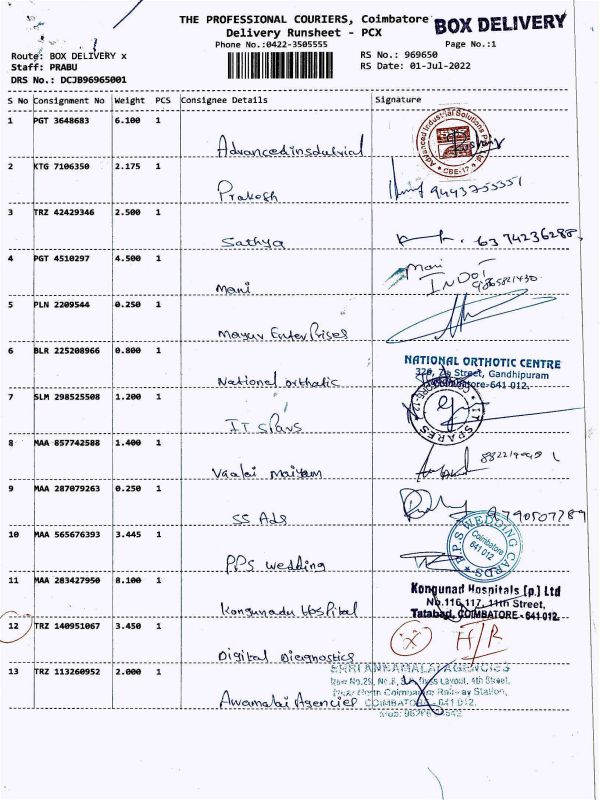 THE PROFESSIONAL COURIERS, Coimbatore
BOX DELIVERY
Delivery Runsheet - PCX
Phone No.:0422-3505555
Page No.:1
Route: BOX DELIVERY x
RS No.: 969650
Staff: PRABU
RS Date: 01-Jul-2022
DRS No.: DCJB96965001
S No Consignment No Weight PCS Consignee Details Signature
1 PGT 3648683 6.100 1
Advancedindustrial
Advanced Industrial Solutions
CBE-17
2 KTG 7106350 2.175 1
Prakash 9443755351
3 TRZ 42429346 2.500 1
Sathya 6374236288
4 PGT 4510297 4.500 1
Mani
Mani
INDOT
5 PLN 2209544 0.250 1
Mayur Enterprises
6 BLR 225208966 0.800 1
National orthotic
NATIONAL ORTHOTIC CENTRE
Street, Gandhipuram
641 012.
7 SLM 298525508 1.200 1
IT Spars
IT SPARES
8 MAA 857742588 1.400 1
Vaalai Maiyam
9 MAA 287079263 0.250 1
SS Ads 9790507789
10 MAA 565676393 3.445 1
PPS wedding
P.P.S WEDDING CARDS
Coimbatore
641 012
11 MAA 283427950 8.100 1
Kongunadu Hospital
Kongunad Hospitals [p.] Ltd
No.116,117, 11th Street,
Tatabad, COIMBATORE - 641 012.
12 TRZ 140951067 3.450 1
Digital Diegnostics
H/R
13 TRZ 113260952 2.000 1
Annamalai Agencies
SHRI ANNAMALAI AGENCIES
Layout, 4th Street,
Near North Coimbatore Railway Station,
COIMBATORE - 641 012.